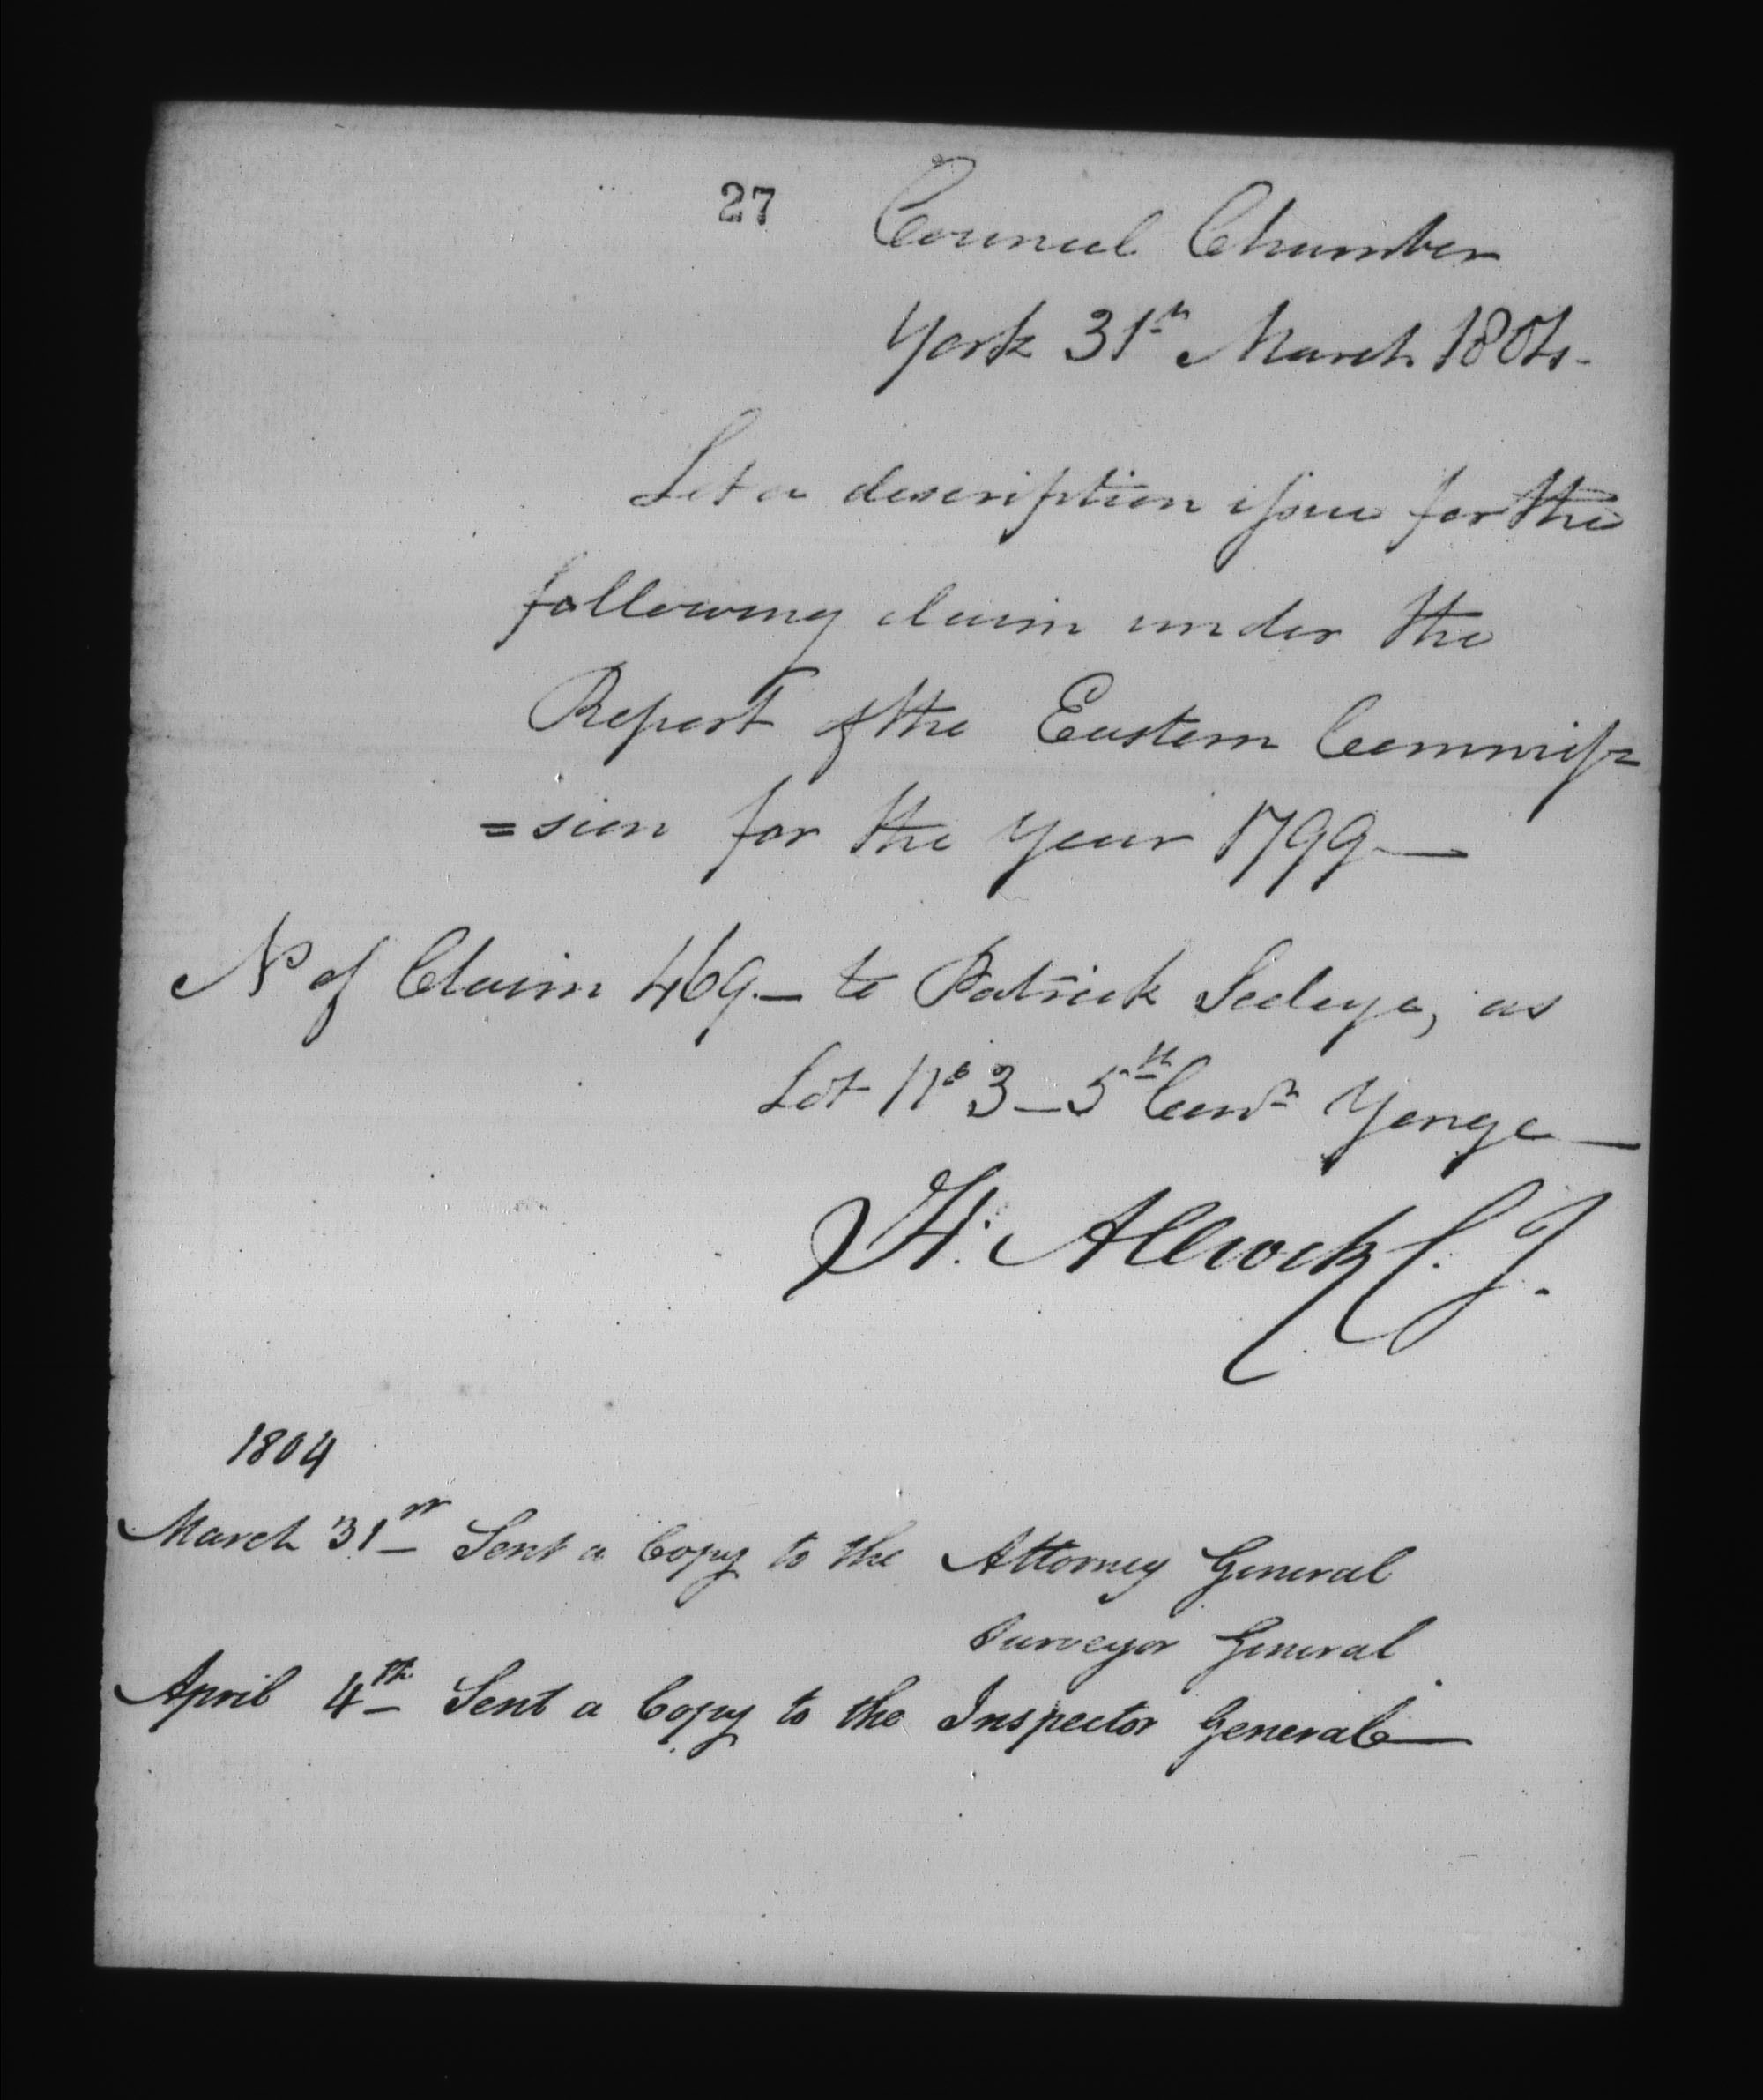 27
Council Chamber
York 31st March 1804.
Let a description issue for the
following claim under the
Report of the Eastern Commis=
=sion for the year 1799—
No of Claim 469— to Patrick Seelye, as
Lot No 3— 5th Conn Yonge—
H. Allcock C. J.
1804
March 31st Sent a Copy to the Attorney General
Surveyor General
April 4th Sent a Copy to the Inspector General—